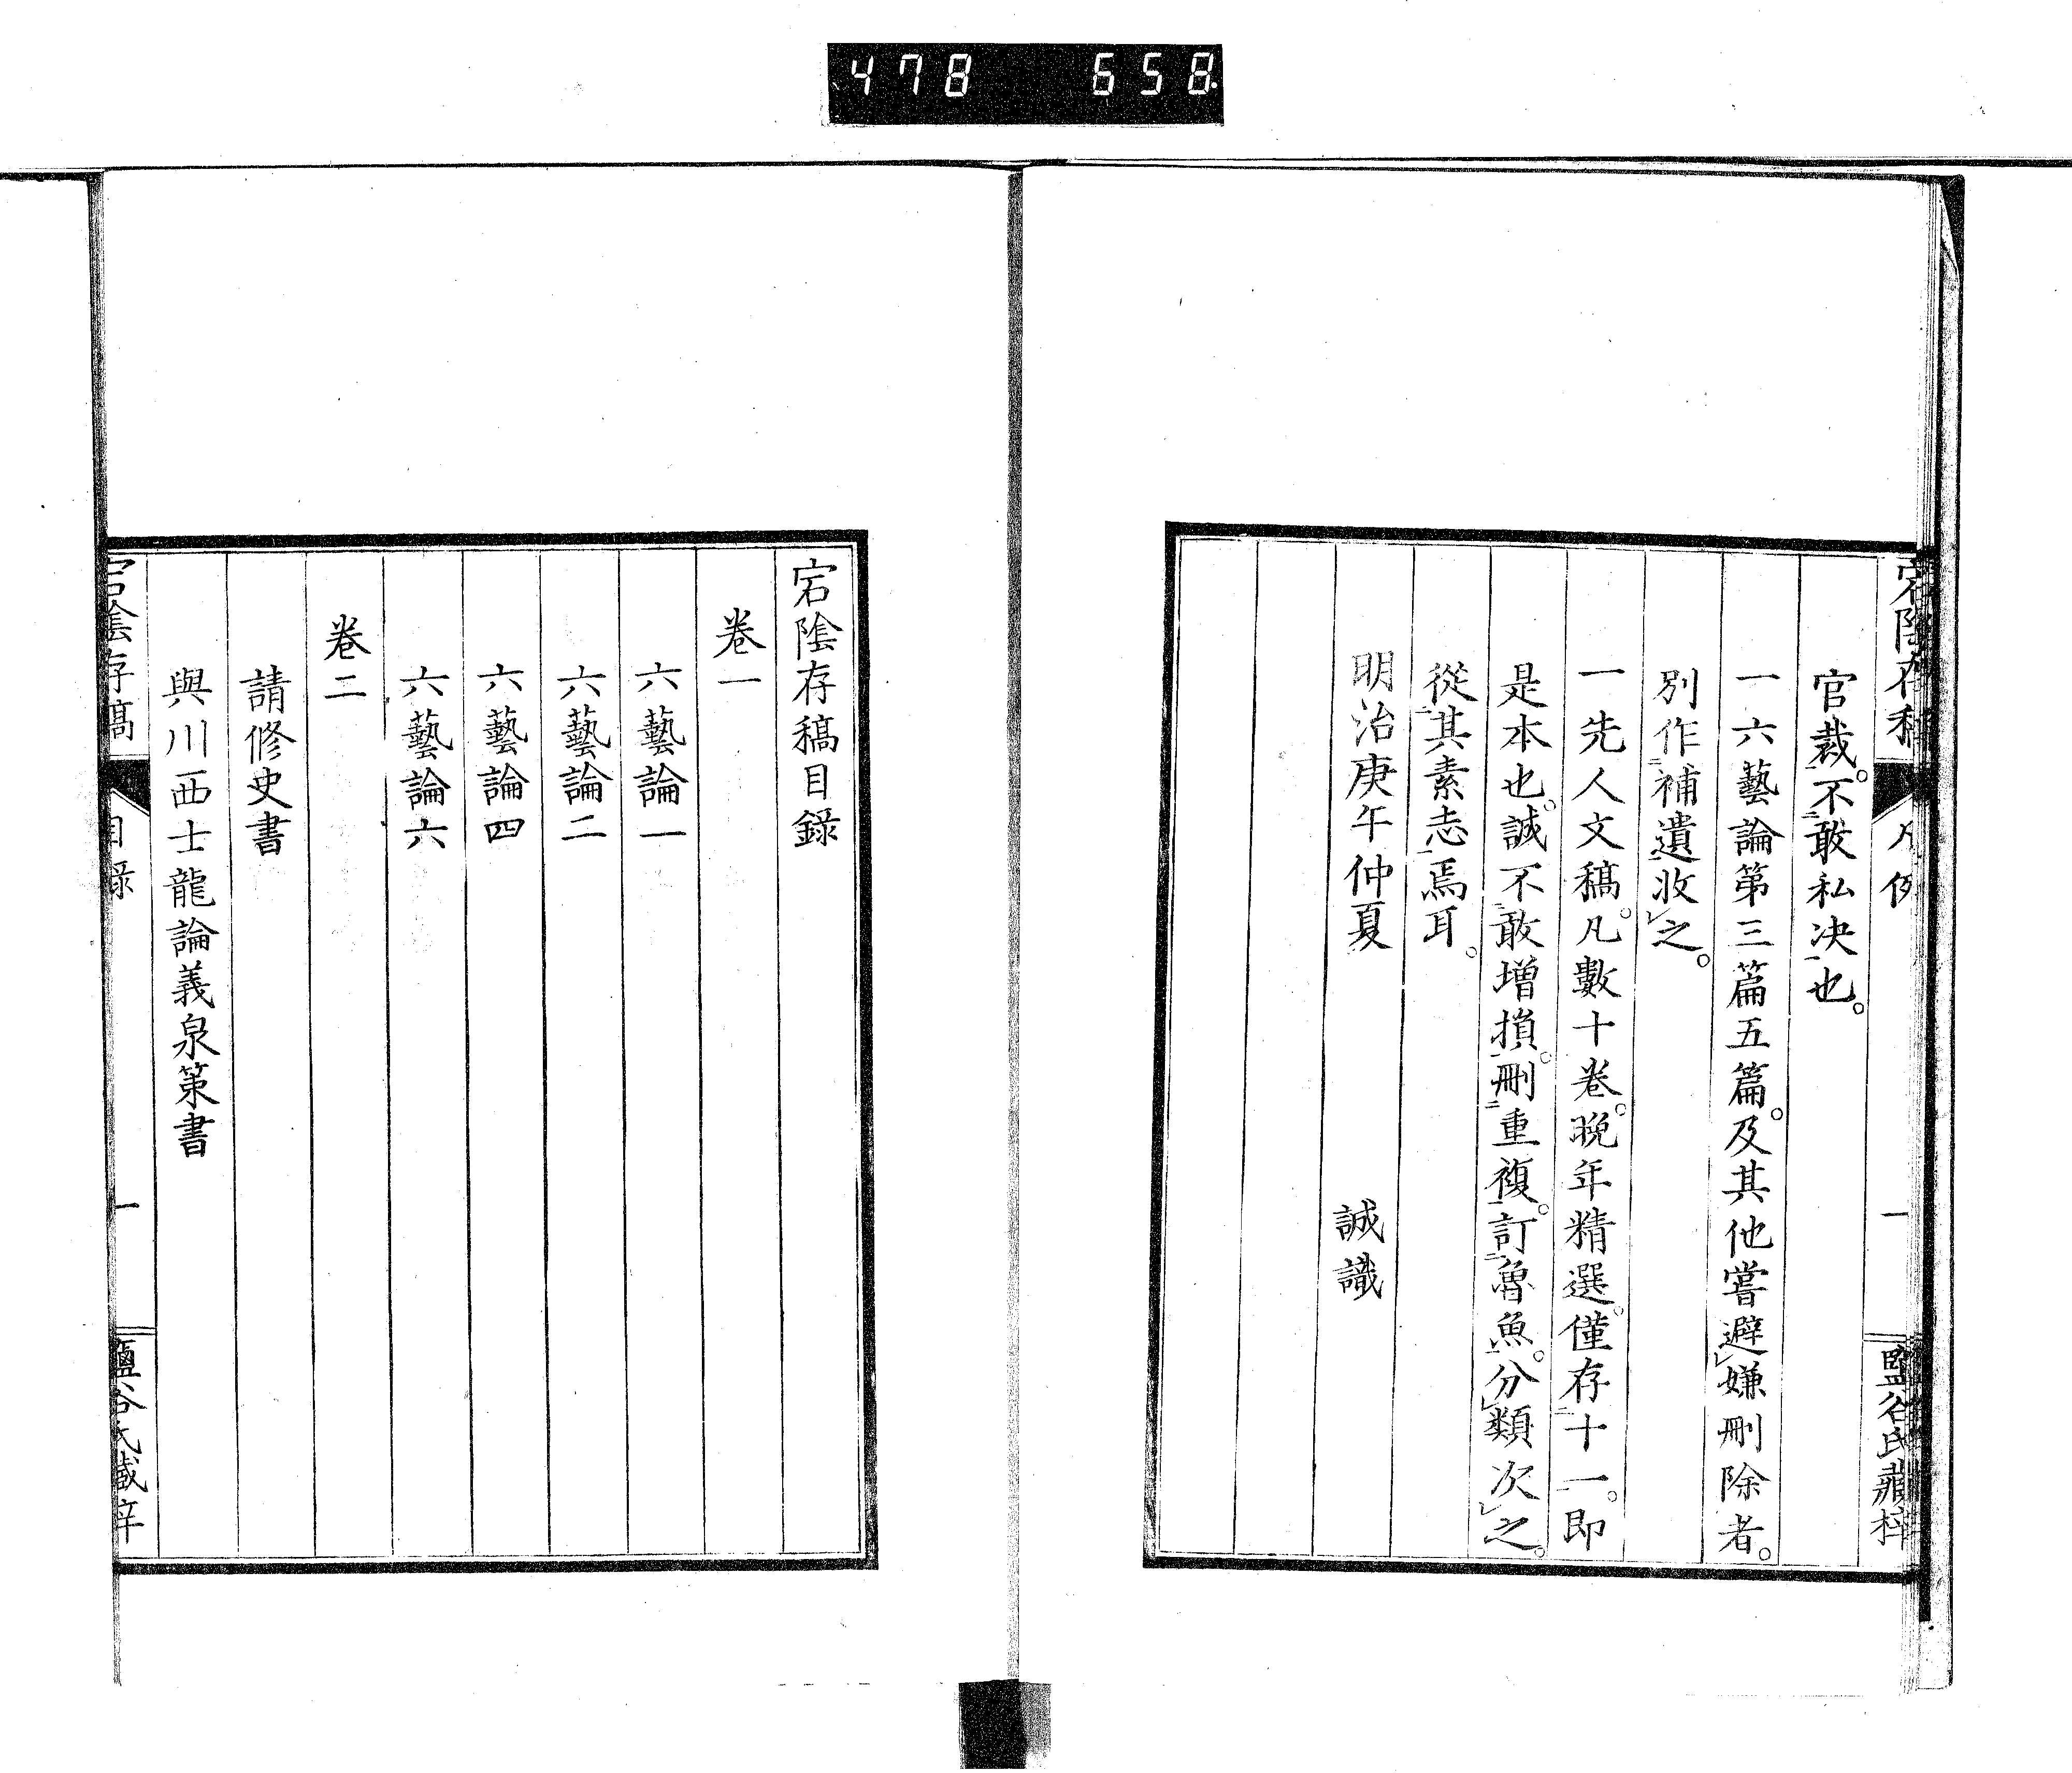 478 658
宕陰存稿
凡例
一
鹽谷氏藏梓
官裁。不敢私決也。
一六藝論第三篇五篇。及其他嘗避嫌刪除者。
別作補遺收之。
一先人文稿。凡數十卷。晩年精選。僅存十一。即
是本也。誠不敢增損。刪重複。訂魯魚。分類次之。
從其素志焉耳。
明治庚午仲夏 誠識
宕陰存稿目錄
卷一
六藝論一
六藝論二
六藝論四
六藝論六
卷二
請修史書
與川西士龍論義泉策書
宕陰存稿
目錄
一
鹽谷氏藏梓